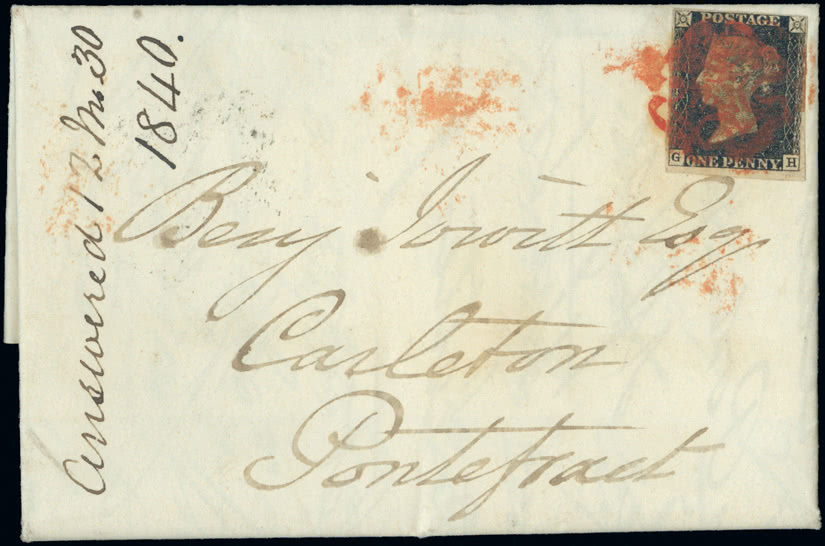 Answered 12 Mo 30
1840.
POSTAGE
ONE PENNY
G H
Benj Jowitt Esq
Carleton
Pontefract